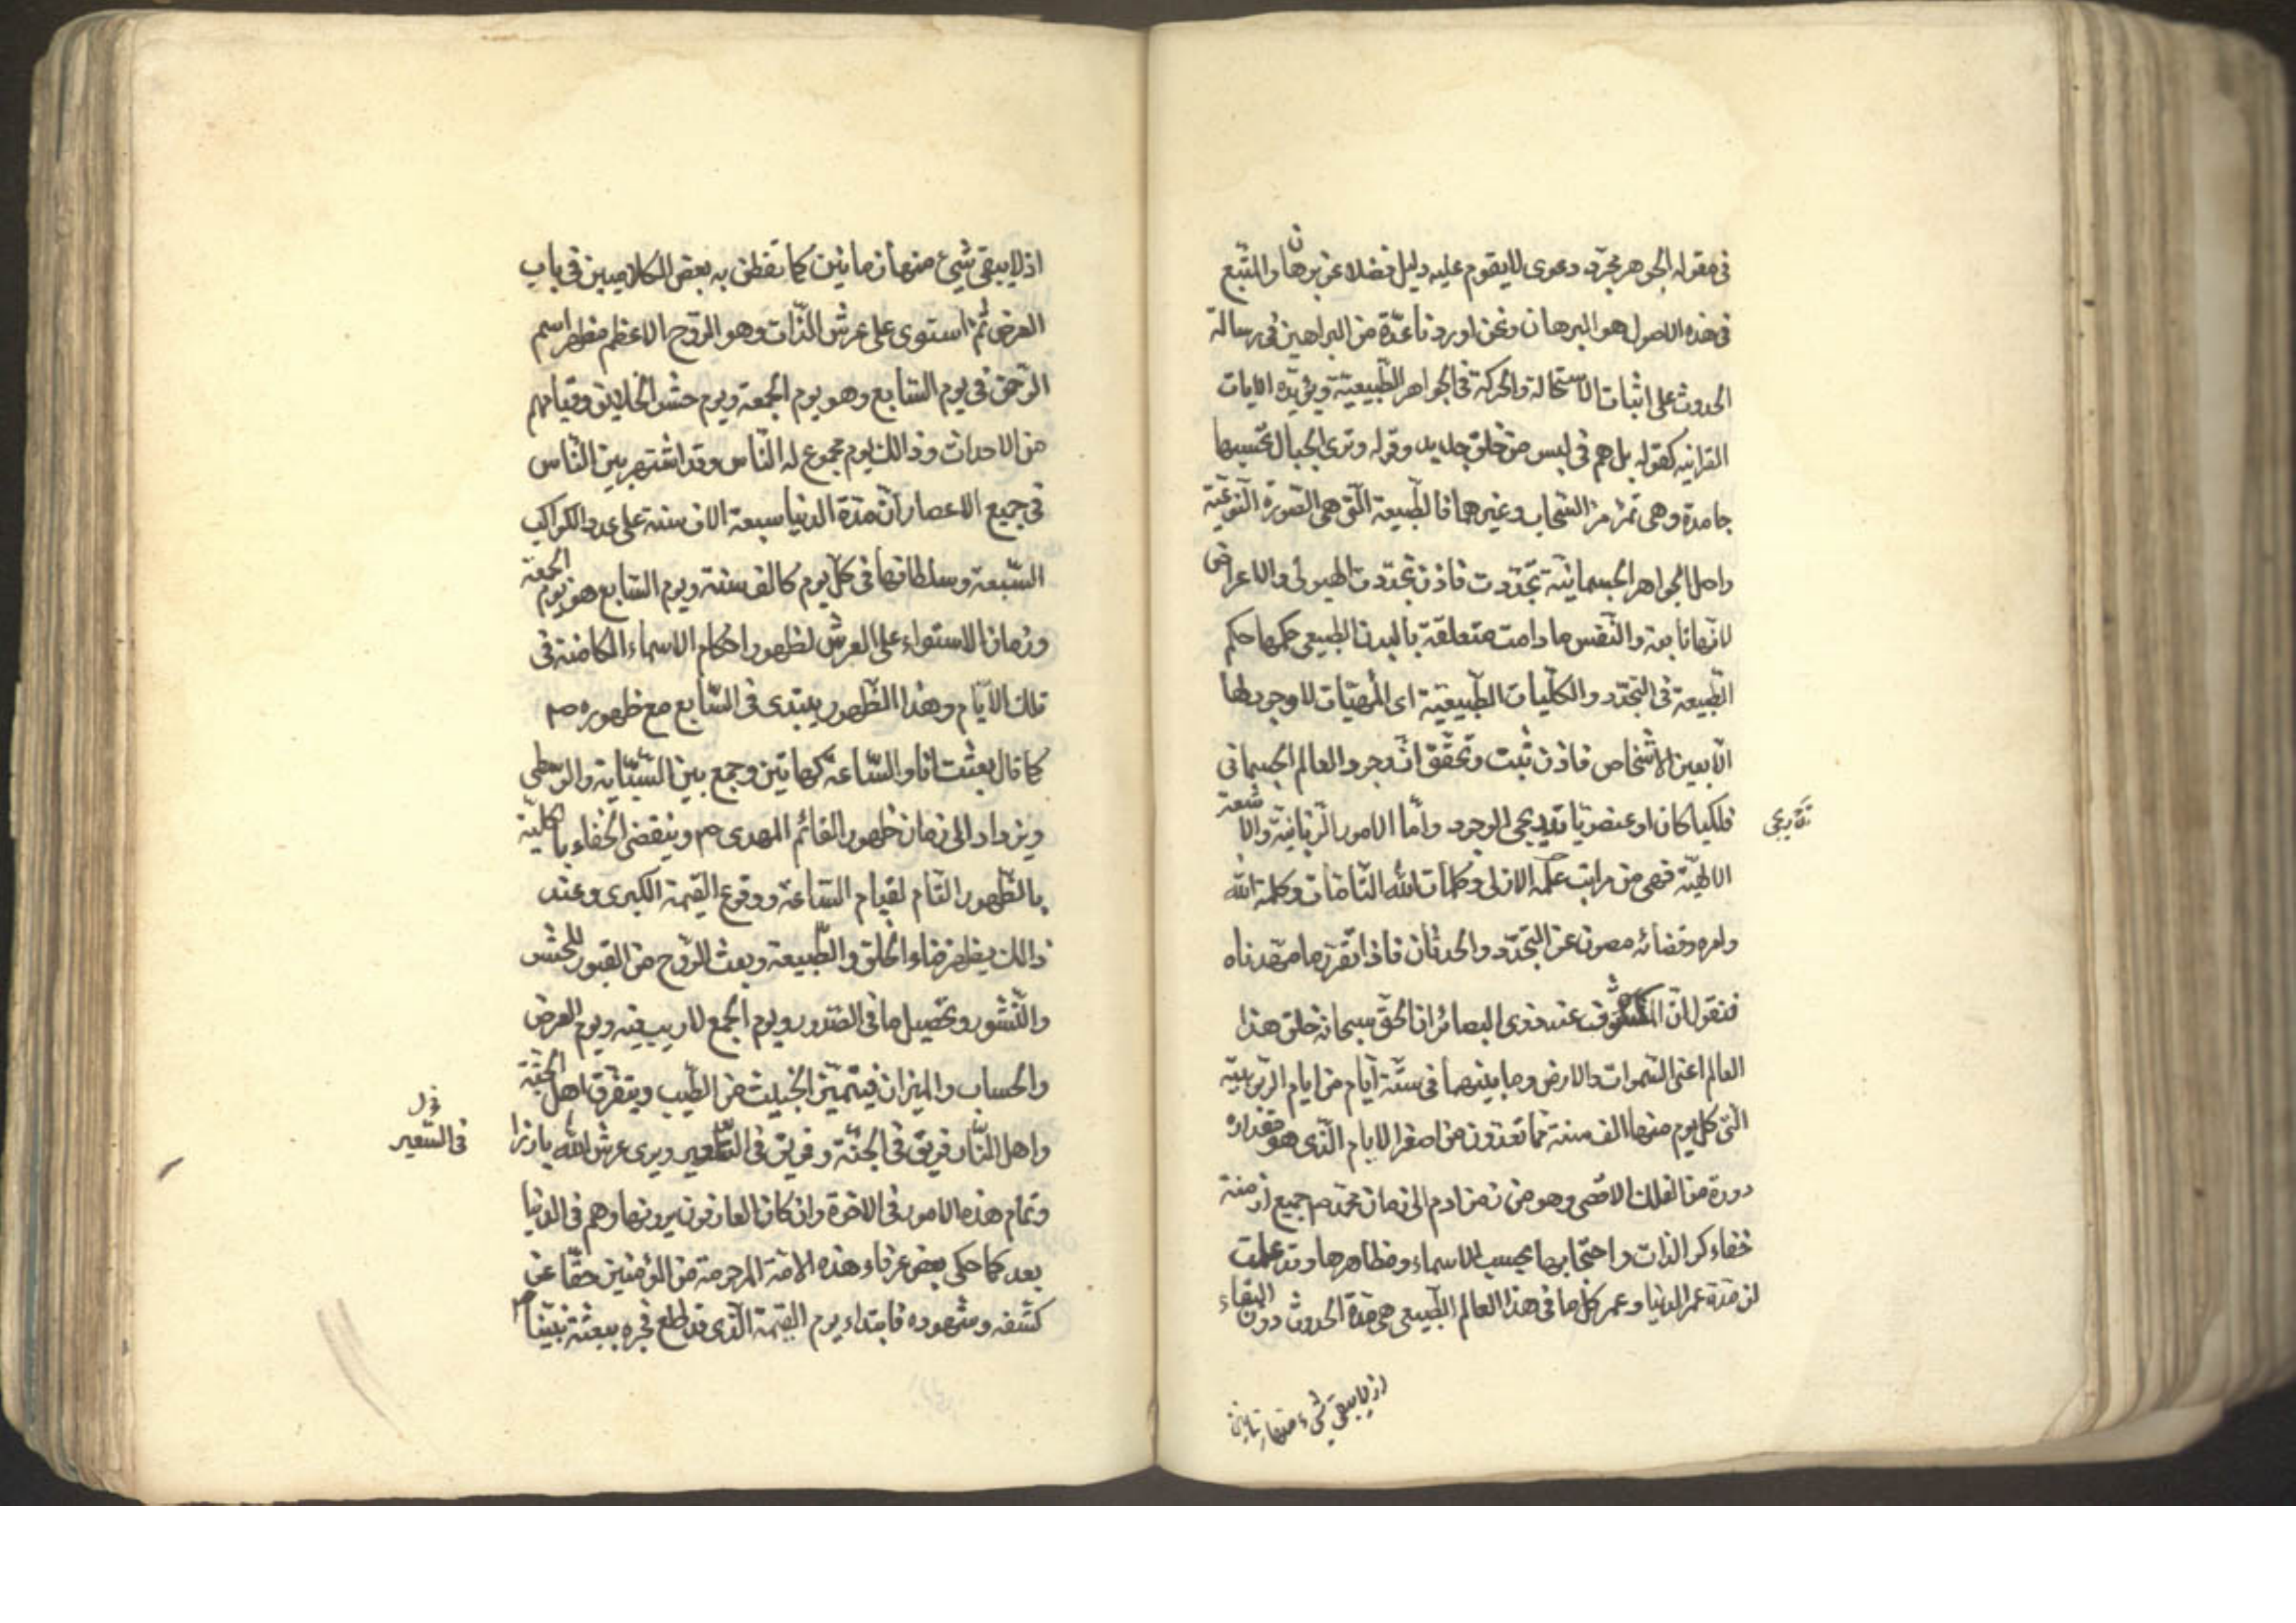 في مقوله الجوهر مجرّد دعوى لا يقوم عليه دليل فضلا عن برهان والمتّبع
في هذه الاصول هو البرهان ونحن اوردنا عدّة من البراهين في رسالة
الحدوث على اثبات الاستحالة والحركة في الجواهر الطّبيعيّة ويؤيّده الايات
القرانيه كقوله بل هم في لبس من خلق جديد وقوله وترى الجبال تحسبها
جامدة وهى تمرّ مرّ السّحاب وغيرهما فالطّبيعة الّتى هى الصّورة النّوعيّة
واصل الجواهر الجسمانيّة تجدّدت فاذن تجدّدت الهيولى والاعراض
لانّها تابعة والنّفس ما دامت متعلقة بالبدن الطبيعى حكمها حكم
الطّبيعة في التجدّد والكلّيات الطّبيعيّة اى المهيّات لا وجود لها
الّا بعين الاشخاص فاذن ثبت وتحقّق انّ وجود العالم الجسمانى
فلكيا كان او عنصريّا تدريجى الوجود وأمّا الامور الرّبانيّة والاشعة
تدريجى
الالهيّة فهى من مراتب علمه الازلى وكلمات اللّه التّامّات وكلمة اللّه
وامره وقضائه مصون عن التجدّد والحدثان فاذا تقرّر ما مهّدناه
فنقول انّ المكشوف عند ذوى البصائر ان الحقّ سبحانه خلق هذا
العالم اعنى السّموات والارض وما بينهما في ستّة أيّام من ايام الرّبوبيّة
الّتى كل يوم منها الف سنة ممّا تعدّون من اصغر الايام الّذى هو مقدار
دورة من الفلك الاقصى وهو من زمن ادم الى زمان محمّد ص جميع ازمنة
خفاء كر الذات واحتجابها بحسب الاسماء ومظاهرها وقد علمت
ان مدّة عمر الدنيا وعمر كل ما في هذا العالم الطّبيعى هى مدّة الحدوث دون البقاء
اذ لا يبقى شىء منها زمانين
اذ لا يبقى شىء منها زمانين كما تفطّن به بعض الكلاميين في باب
العرض ثمّ استوى على عرش الذّات وهو الرّوح الاعظم مظهر اسم
الرّحمن في يوم السّابع وهو يوم الجمعة ويوم حشر الخلايق وقيامهم
من الاحداث وذالك يوم مجموع له النّاس وقد اشتهر بين النّاس
في جميع الاعصار انّ مدّة الدنيا سبعة الاف سنة على عدد الكواكب
السّبعة وسلطانها في كلّ يوم كالف سنة ويوم السّابع هو يوم الجمعة
وزمان الاستواء على العرش لظهور احكام الاسماء الكامنة فى
تلك الايّام وهذا الظّهور يبتدى في السّابع مع ظهوره ص
كما قال بعثت انا والسّاعة كهاتين وجمع بين السّبّابة والوسطى
ويزداد الى زمان ظهور القائم المهدى ع وينقضى الخفاء بالكليّة
بالظّهور التّام لقيام السّاعة ووقوع القيمة الكبرى وعند
ذالك يظهر فناء الخلق والطّبيعة وبعث الرّوح من القبور للحشر
والنّشور وتحصيل ما في الصّدور ويوم الجمع لا ريب فيه ويوم العرض
والحساب والميزان فيتميّز الخبيث من الطّيب ويتفرّق اهل الجنّة
واهل النّار فريق في الجنّة وفريق في السّعير ويرى عرش اللّه بارزا
في السّعير
وتمام هذه الامور في الاخرة وان كان العارفون يرونها وهم في الدنيا
بعد كما حكى بعض عرفاء هذه الامّة المرحومة من المؤمنين حقّا عن
كشفه وشهوده فابتداء يوم القيمة الّذى قد طلع فجره ببعثة نبيّنا ص